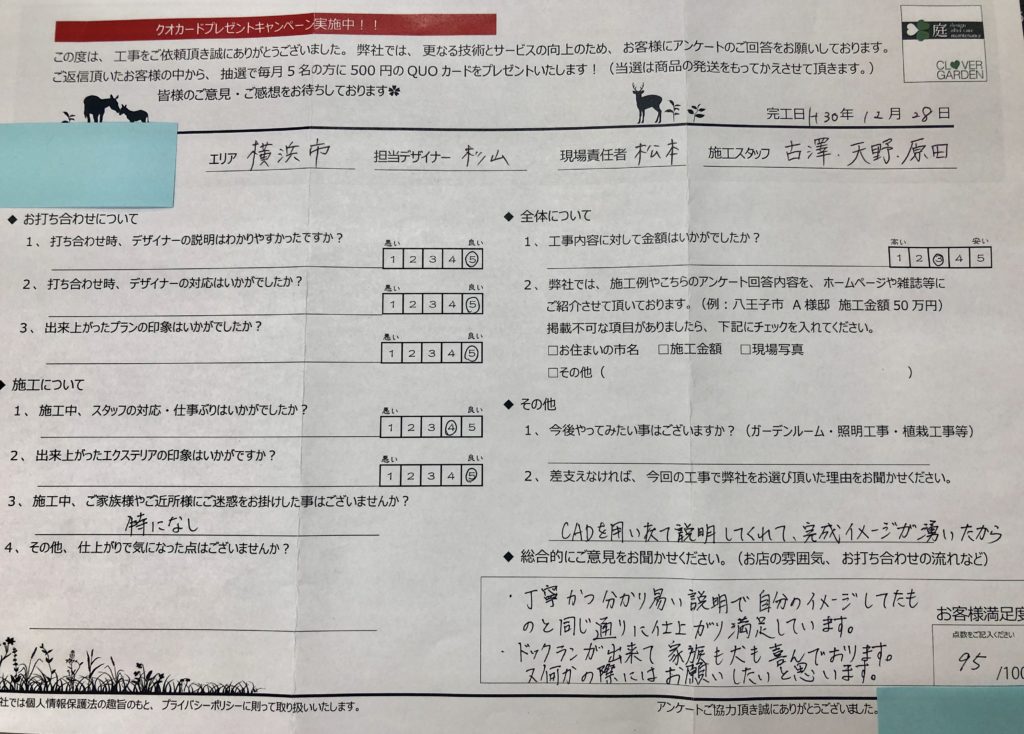 クオカードプレゼントキャンペーン実施中！！
この度は、工事をご依頼頂き誠にありがとうございました。弊社では、更なる技術とサービスの向上のため、お客様にアンケートのご回答をお願いしております。
ご返信頂いたお客様の中から、抽選で毎月５名の方に500円のQUOカードをプレゼントいたします！（当選は商品の発送をもってかえさせて頂きます。）
皆様のご意見・ご感想をお待ちしております✽
庭
design
after care
maintenance
CLOVER
GARDEN
完工日 H30年 12月 28日
エリア 横浜市 担当デザイナー 杉山 現場責任者 松本 施工スタッフ 古澤、天野、原田
◆ お打ち合わせについて
1、打ち合わせ時、デザイナーの説明はわかりやすかったですか？
悪い 良い
1 2 3 4 ⑤
2、打ち合わせ時、デザイナーの対応はいかがでしたか？
悪い 良い
1 2 3 4 ⑤
3、出来上がったプランの印象はいかがでしたか？
悪い 良い
1 2 3 4 ⑤
◆ 施工について
1、施工中、スタッフの対応・仕事ぶりはいかがでしたか？
悪い 良い
1 2 3 ④ 5
2、出来上がったエクステリアの印象はいかがですか？
悪い 良い
1 2 3 4 ⑤
3、施工中、ご家族様やご近所様にご迷惑をお掛けした事はございませんか？
特になし
4、その他、仕上がりで気になった点はございませんか？
◆ 全体について
1、工事内容に対して金額はいかがでしたか？
高い 安い
1 2 ③ 4 5
2、弊社では、施工例やこちらのアンケート回答内容を、ホームページや雑誌等に
ご紹介させて頂いております。（例：八王子市 A様邸 施工金額50万円）
掲載不可な項目がありましたら、下記にチェックを入れてください。
□お住まいの市名 □施工金額 □現場写真
□その他（ ）
◆ その他
1、今後やってみたい事はございますか？（ガーデンルーム・照明工事・植栽工事等）
2、差支えなければ、今回の工事で弊社をお選び頂いた理由をお聞かせください。
CADを用いて説明してくれて、完成イメージが湧いたから
◆ 総合的にご意見をお聞かせください。（お店の雰囲気、お打ち合わせの流れなど）
・丁寧かつ分かり易い説明で自分のイメージしてたも
のと同じ通りに仕上がり満足しています。
・ドックランが出来て家族も犬も喜んでおります。
又何かの際にはお願いしたいと思います。
お客様満足度
点数をご記入ください
95 /100
社では個人情報保護法の趣旨のもと、プライバシーポリシーに則って取り扱いいたします。
アンケートご協力頂き誠にありがとうございました。